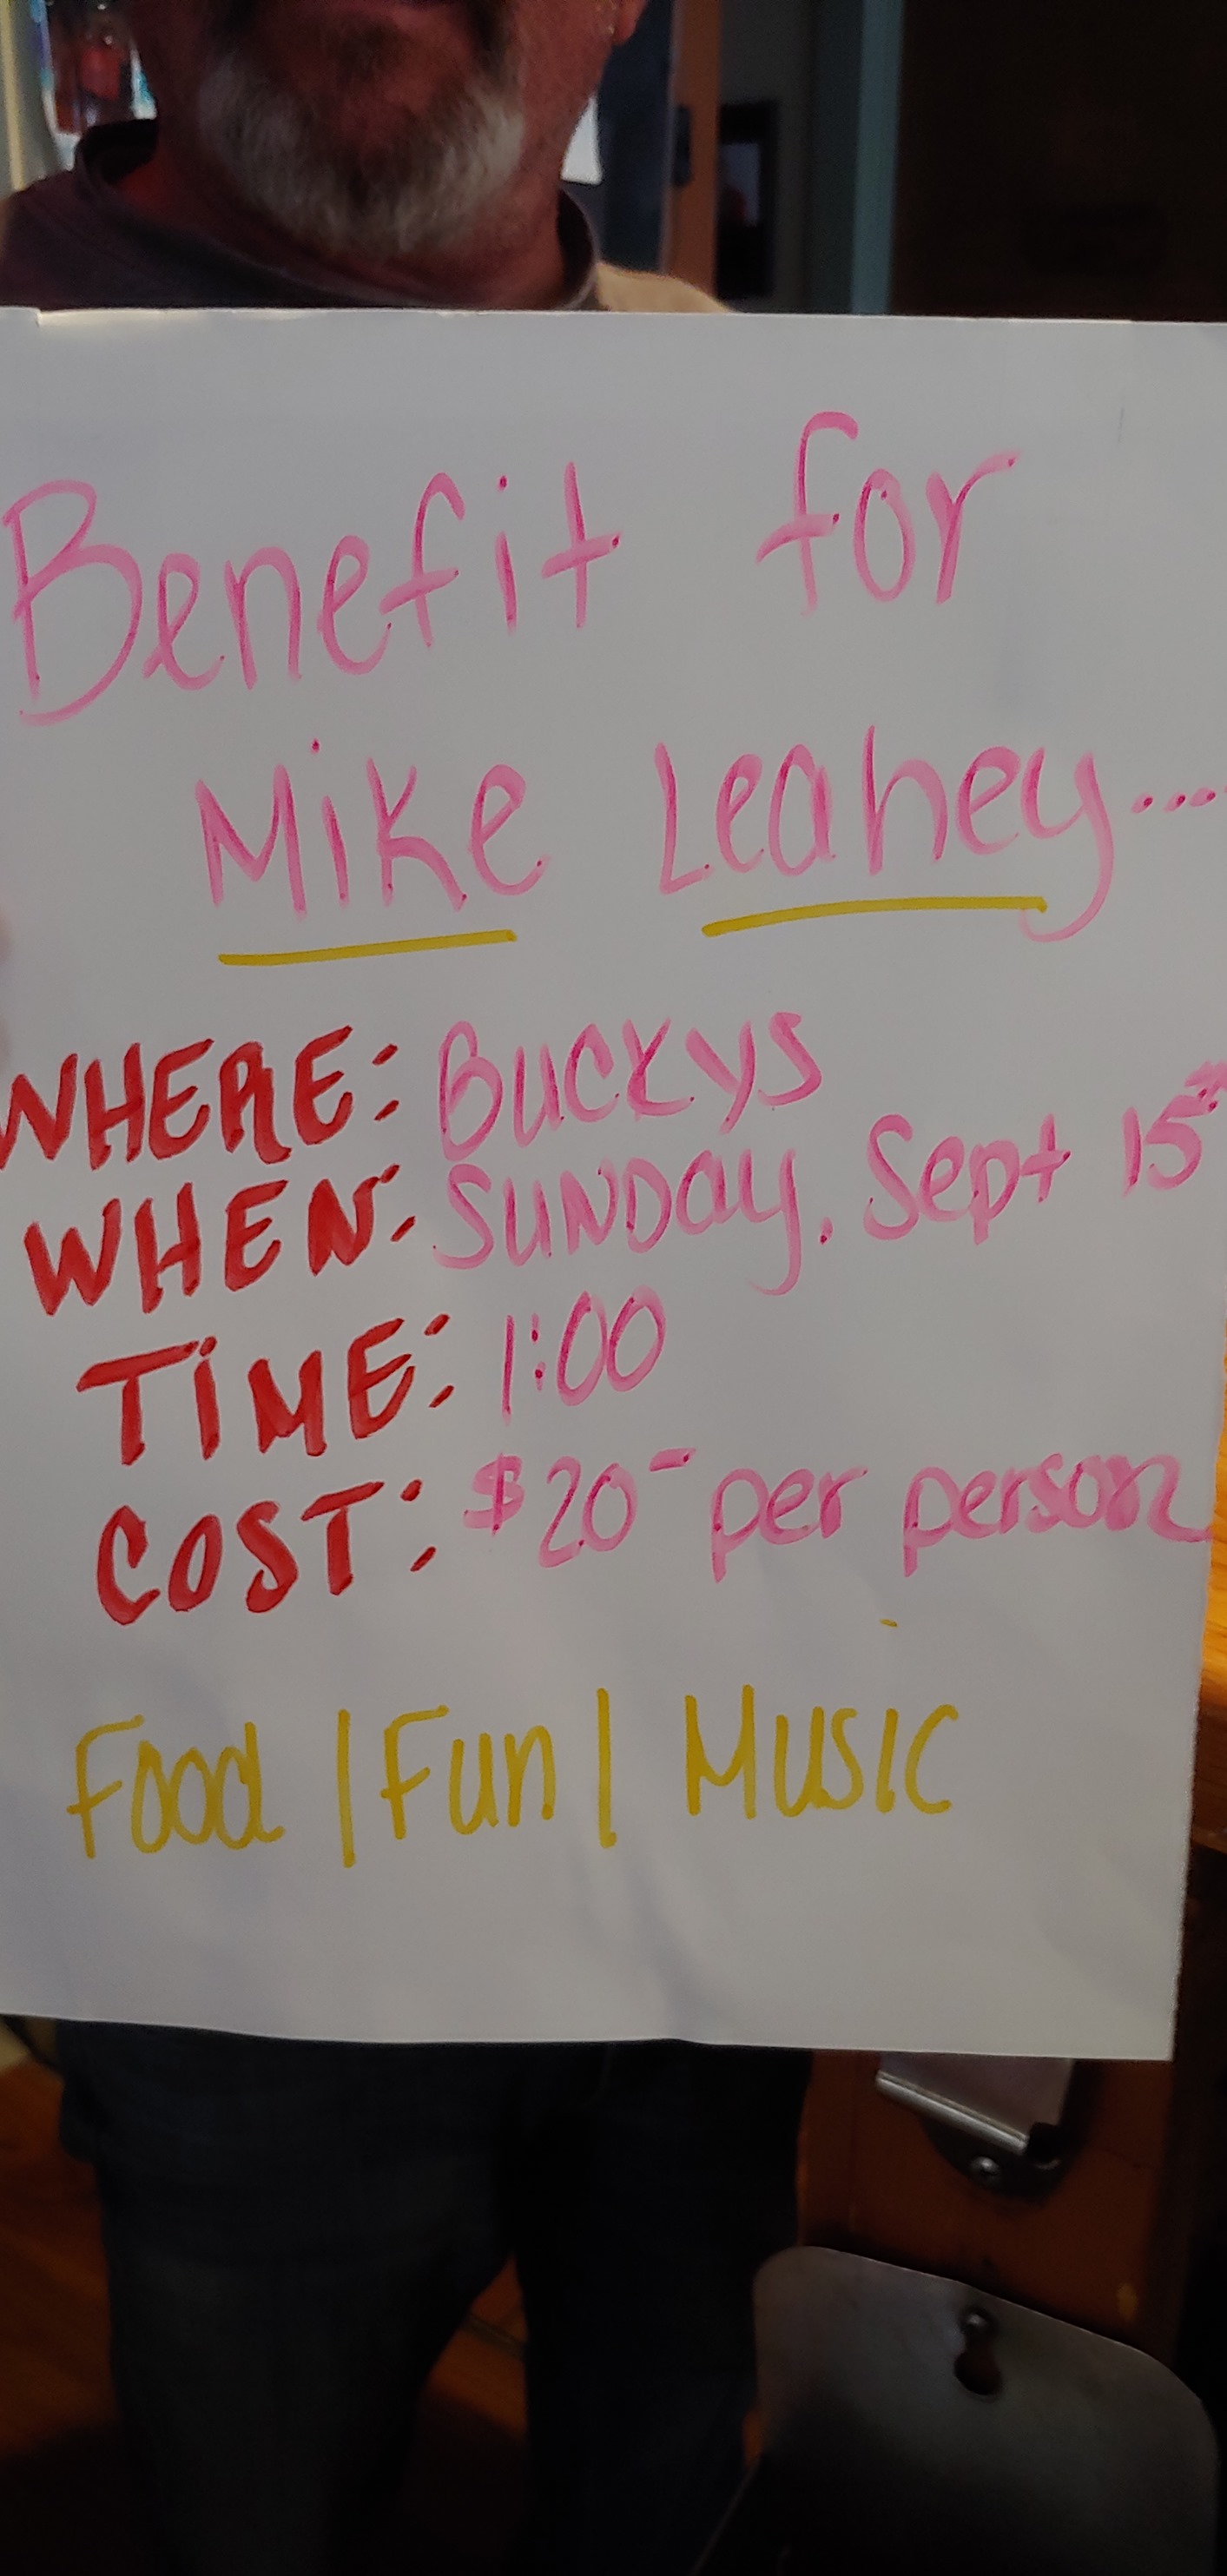 Benefit for
Mike Leahey....
WHERE: Buckys
WHEN: SUNDay. Sept 15th
TiME: 1:00
COST: $20- per person
Food | Fun | Music